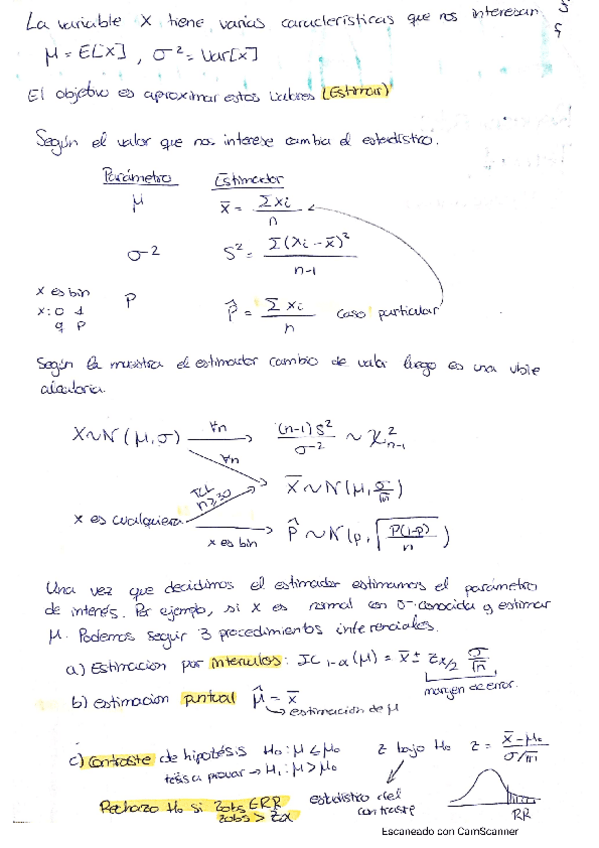 La variable X tiene varias características que nos interesan
μ = E[X] , σ² = Var[X]
El objetivo es aproximar estos valores (Estimar)
Según el valor que nos interese cambia el estadístico.
Parámetro Estimador
μ x̄ = Σxi / n
σ² S² = Σ(xi - x̄)² / n-1
x es bin
x: 0 1
q p
P p̂ = Σxi / n caso particular
Según la muestra el estimador cambia de valor luego es una vble
aleatoria.
X~N(μ,σ) ∀n (n-1)S² / σ² ~ χ²n-1
∀n
TCL
n≥30
X̄ ~ N(μ, σ/√n)
x es cualquiera
x es bin
p̂ ~ N(p, √(P(1-p)/n))
Una vez que decidimos el estimador estimamos el parámetro
de interés. Por ejemplo, si X es normal con σ conocida y estimar
μ. Podemos seguir 3 procedimientos inferenciales.
a) Estimación por intervalos: IC 1-α (μ) = x̄ ± zα/2 σ/√n
margen de error.
b) estimación puntual μ̂ = x̄
estimación de μ
c) Contraste de hipótesis H₀: μ ≤ μ₀ z bajo H₀ z = x̄-μ₀ / σ/√n
tesis a provar → H₁: μ > μ₀
Rechazo H₀ si zobs ∈ RR estadístico del
zobs > zα contraste
RR
Escaneado con CamScanner